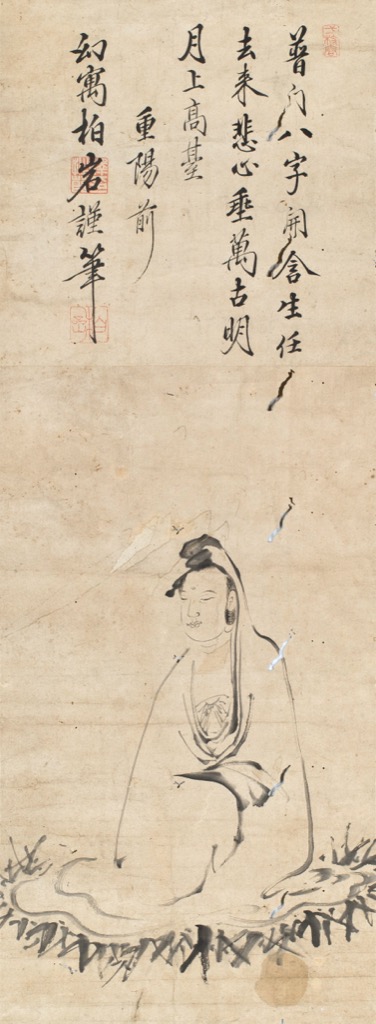 普門八字開含生任
去来悲心垂萬古明
月上高臺
重陽前
幻寓柏岩謹筆